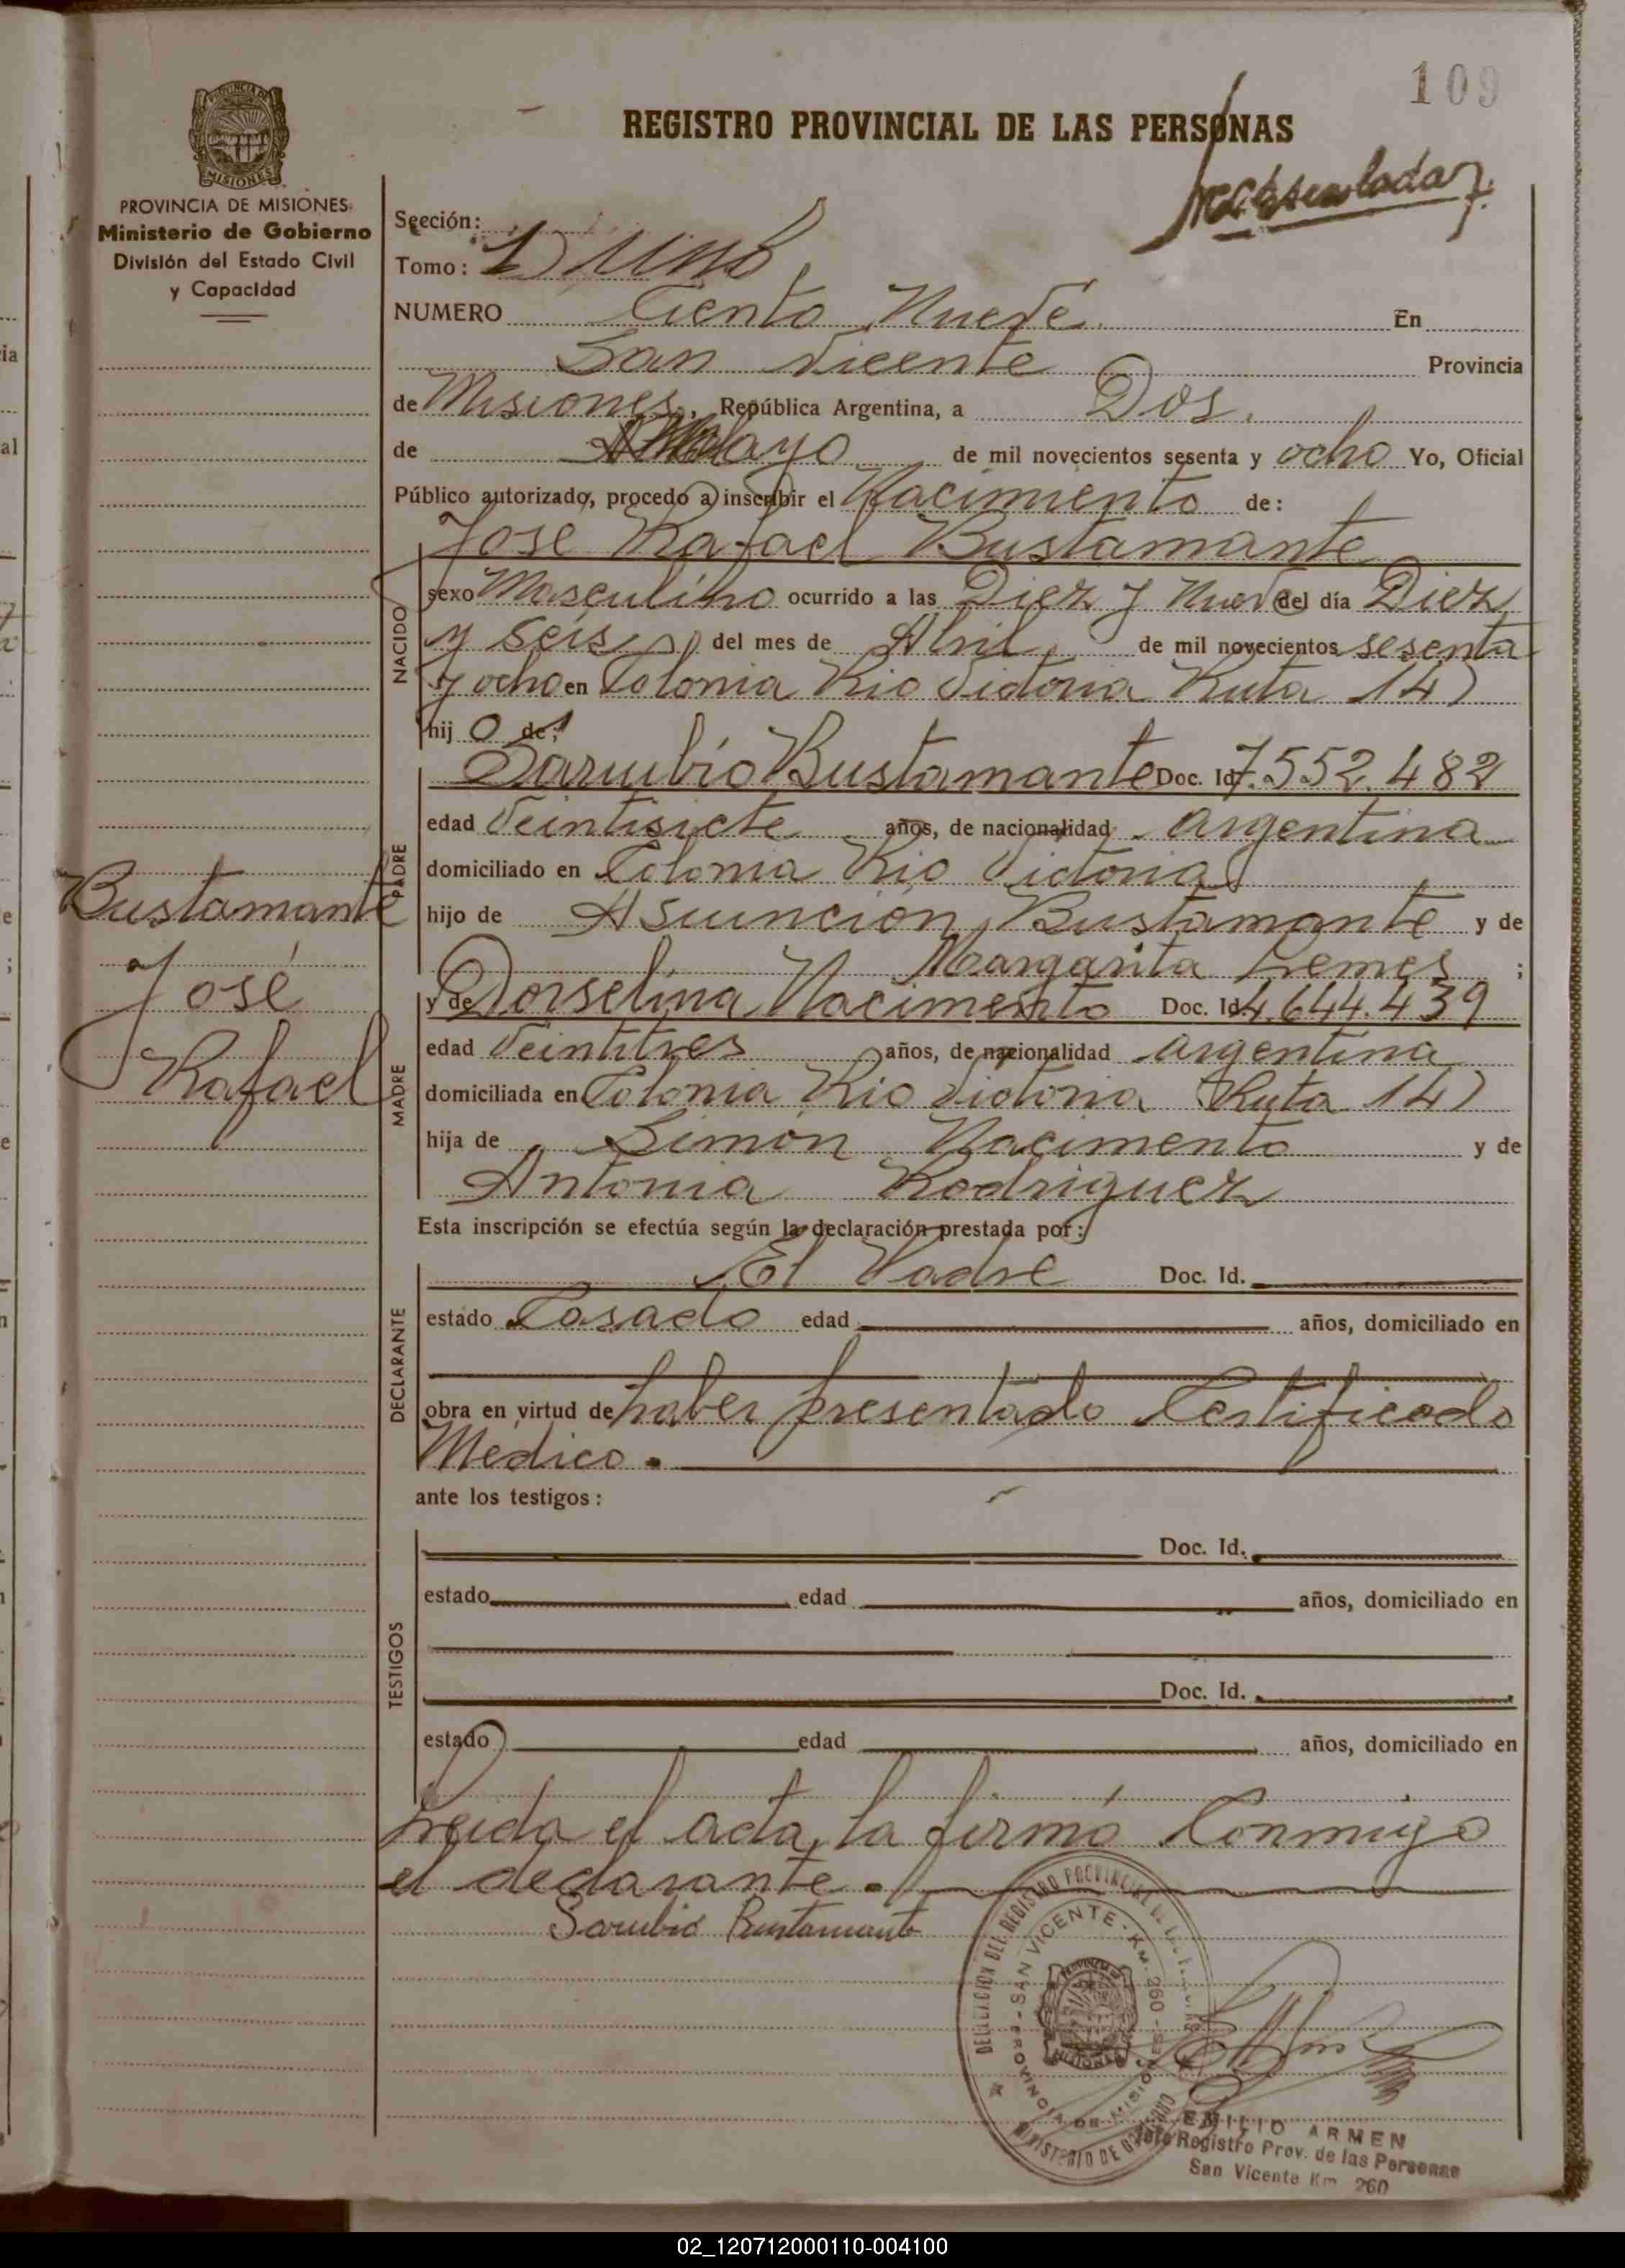 109
REGISTRO PROVINCIAL DE LAS PERSONAS
PROVINCIA DE MISIONES
Ministerio de Gobierno
División del Estado Civil
y Capacidad
Sección:
Tomo: 1) Uno
NUMERO Ciento Nueve En
San Vicente Provincia
de Misiones, República Argentina, a Dos
de Mayo de mil novecientos sesenta y ocho Yo, Oficial
Público autorizado, procedo a inscribir el Nacimiento de:
Jose Rafael Bustamante
NACIDO
sexo Masculino ocurrido a las Diez y Nueve del día Diez
y seis del mes de Abril de mil novecientos sesenta
y ocho en Colonia Rio Victoria Ruta 14)
hij o de:
Sarubio Bustamante Doc. Id. 7.552.482
PADRE
edad Veintisiete años, de nacionalidad argentina
domiciliado en Colonia Rio Victoria
Bustamante
José
Rafael
hijo de Asuncion Bustamante y de
Margarita Lemes ;
y de Dorselina Nacimento Doc. Id. 4.644.439
MADRE
edad Veintitres años, de nacionalidad argentina
domiciliada en Colonia Rio Victoria Ruta 14)
hija de Simón Nacimento y de
Antonia Rodriguez
Esta inscripción se efectúa según la declaración prestada por:
DECLARANTE
El Padre Doc. Id.
estado Casado edad años, domiciliado en
obra en virtud de haber presentado Certificado
Médico.
ante los testigos:
TESTIGOS
Doc. Id.
estado edad años, domiciliado en
Doc. Id.
estado edad años, domiciliado en
Leida el acta, la firmó Conmigo
el declarante.
Sarubio Bustamante
DELEGACION DEL REGISTRO PROVINCIAL DE LAS PERSONAS
SAN VICENTE - Km. 260 -
PROVINCIA DE MISIONES
MINISTERIO DE GOBIERNO
EMILIO ARMEN
Jefe Registro Prov. de las Personas
San Vicente Km 260
02_120712000110-004100